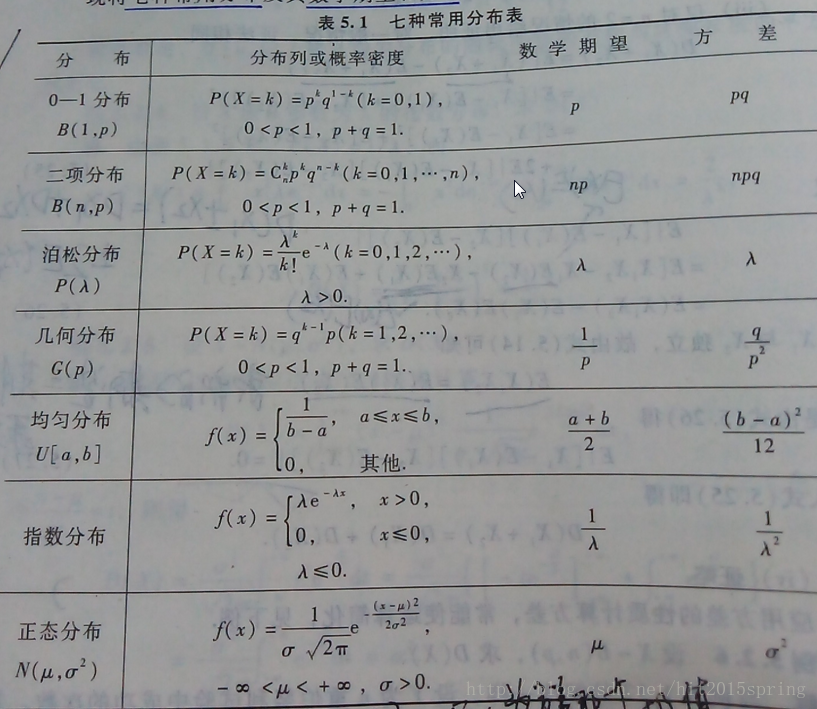 表 5.1 七种常用分布表
分 布 分布列或概率密度 数 学 期 望 方 差
0—1 分布 B(1,p) P(X=k)=p^k q^{1-k}(k=0,1), 0<p<1, p+q=1. p pq
二项分布 B(n,p) P(X=k)=C_n^k p^k q^{n-k}(k=0,1,⋯,n), 0<p<1, p+q=1. np npq
泊松分布 P(λ) P(X=k)=\frac{λ^k}{k!}e^{-λ}(k=0,1,2,⋯), λ>0. λ λ
几何分布 G(p) P(X=k)=q^{k-1}p(k=1,2,⋯), 0<p<1, p+q=1. \frac{1}{p} \frac{q}{p^2}
均匀分布 U[a,b] f(x)={ \frac{1}{b-a}, a≤x≤b, 0, 其他. \frac{a+b}{2} \frac{(b-a)^2}{12}
指数分布 f(x)={ λe^{-λx}, x>0, 0, x≤0, λ≤0. \frac{1}{λ} \frac{1}{λ^2}
正态分布 N(μ,σ^2) f(x)=\frac{1}{σ\sqrt{2π}}e^{-\frac{(x-μ)^2}{2σ^2}}, -∞<μ<+∞, σ>0. μ σ^2